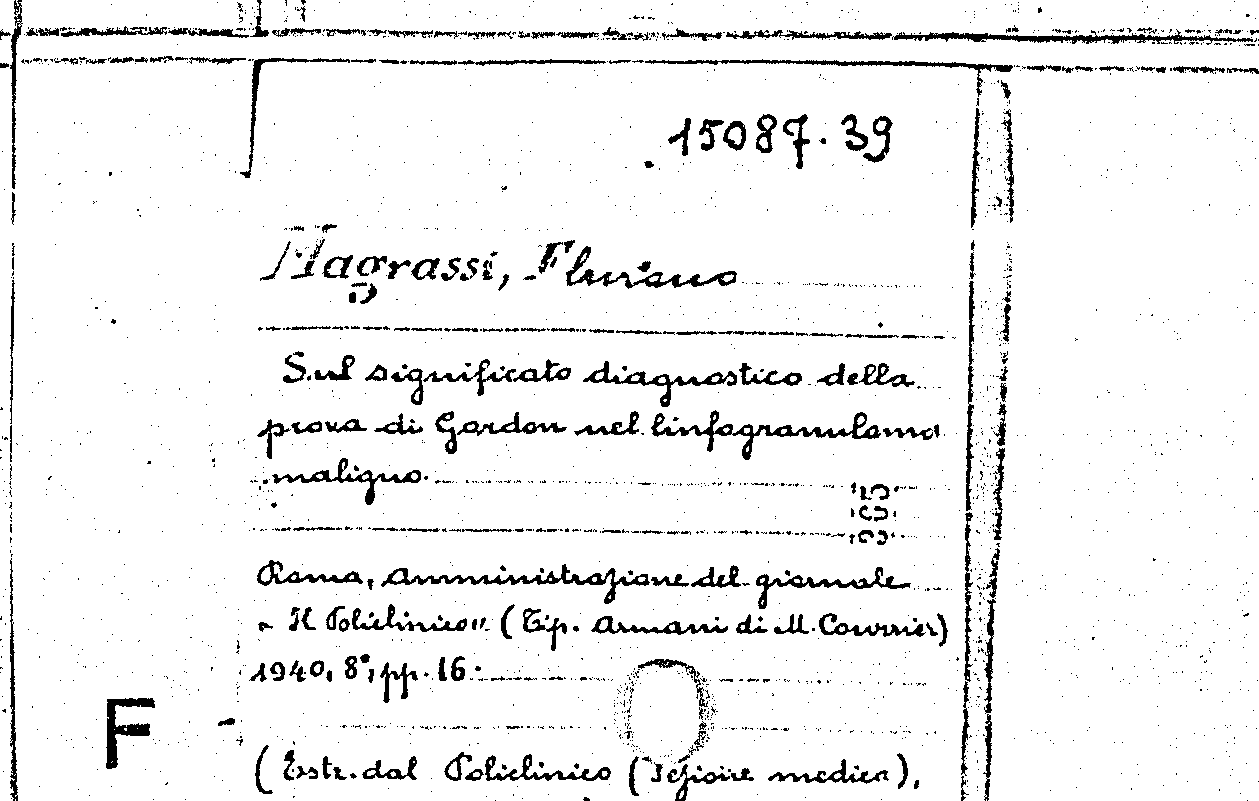 15087.39
Magrassi, Floriano
Sul significato diagnostico della
prova di Gordon nel linfogranuloma
maligno.
Roma, Amministrazione del giornale
"Il Policlinico" (Tip. Armani di M. Courrier)
1940, 8°, pp. 16.
F
(Estr. dal Policlinico (Sezione medica),